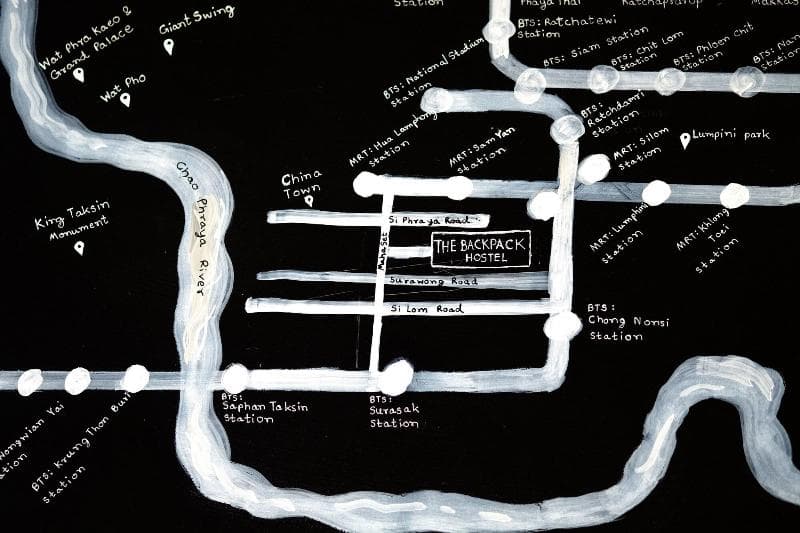 Station
Phaya Thai
Ratchaprarop
Makkas
Giant Swing
Wat Phra Kaeo &
Grand Palace
Wat Pho
BTS: Ratchatewi
Station
BTS: Siam Station
BTS: Chit Lom
Station
BTS: Phloen Chit
Station
BTS: Nan
Station
BTS: National Stadium
Station
BTS:
Ratchdamri
Station
MRT: Hua Lamphong
Station
MRT: Sam Yan
Station
MRT: Silom
Station
Lumpini park
China
Town
Chao Phraya River
King Taksin
Monument
Si Phraya Road
Mahaset
THE BACKPACK
HOSTEL
Surawong Road
Si Lom Road
MRT: Lumphini
Station
MRT: Khlong
Toei
Station
BTS:
Chong Nonsi
Station
BTS:
Saphan Taksin
Station
BTS:
Surasak
Station
Wongwian Yai
ation
BTS: Krung Thon Buri
Station